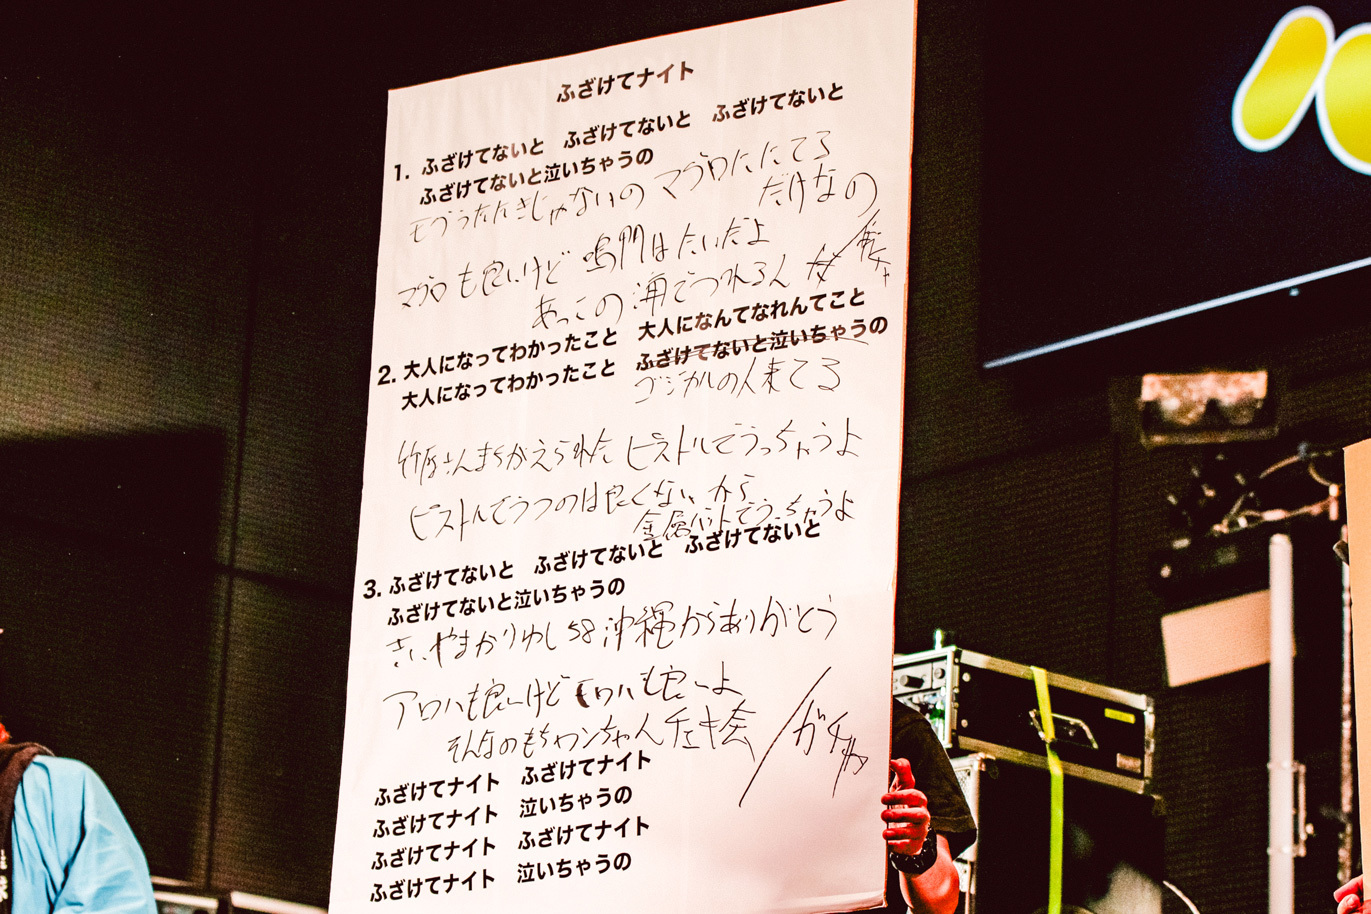 ふざけてナイト
1. ふざけてないと　ふざけてないと　ふざけてないと
ふざけてないと泣いちゃうの
じゃないの マグロたたてる
だけなの
マグロも良いけど 鳴門はたいだよ
あっこの海でつれるん
2. 大人になってわかったこと　大人になんてなれんてこと
大人になってわかったこと　ふざけてないと泣いちゃうの
ゴジカルの人来てる
竹原さんまちがえられた ピストルでうっちゃうよ
ピストルでうつのは良くないから
金属バットでうっちゃうよ
3. ふざけてないと　ふざけてないと　ふざけてないと
ふざけてないと泣いちゃうの
かりゆし58 沖縄からありがとう
アロハも良いけど モロハも良いよ
そんなのもちゃんちゃん
ふざけてナイト　ふざけてナイト
ふざけてナイト　泣いちゃうの
ふざけてナイト　ふざけてナイト
ふざけてナイト　泣いちゃうの